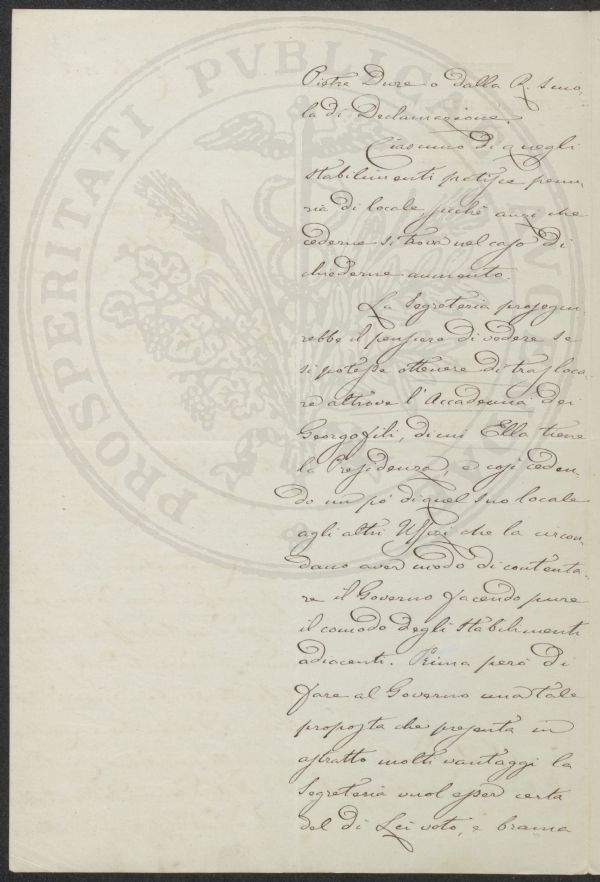 PROSPERITATI PVBLICAE
Pietre Dure o dalla R. Scuo-
la di Declamazione.
Ciascuno di quegli
stabilimenti patisce penu-
ria di locale, sicchè anzi che
cederne si trova nel caso di
chiederne aumento.
La Segreteria prosegui-
rebbe il pensiero di vedere se
si potesse ottenere di trasloca-
re altrove l'Accademia dei
Georgofili, di cui Ella tiene
la Presidenza, e così ceden-
do un pó di quel suo locale
agli altri Uffizi che la circon-
dano aver modo di contenta-
re il Governo facendo pure
il comodo degli stabilimenti
adiacenti. Prima però di
fare al Governo una tale
proposta che presenta in
astratto molti vantaggi la
Segreteria vuol esser certa
del di Lei voto, e brama